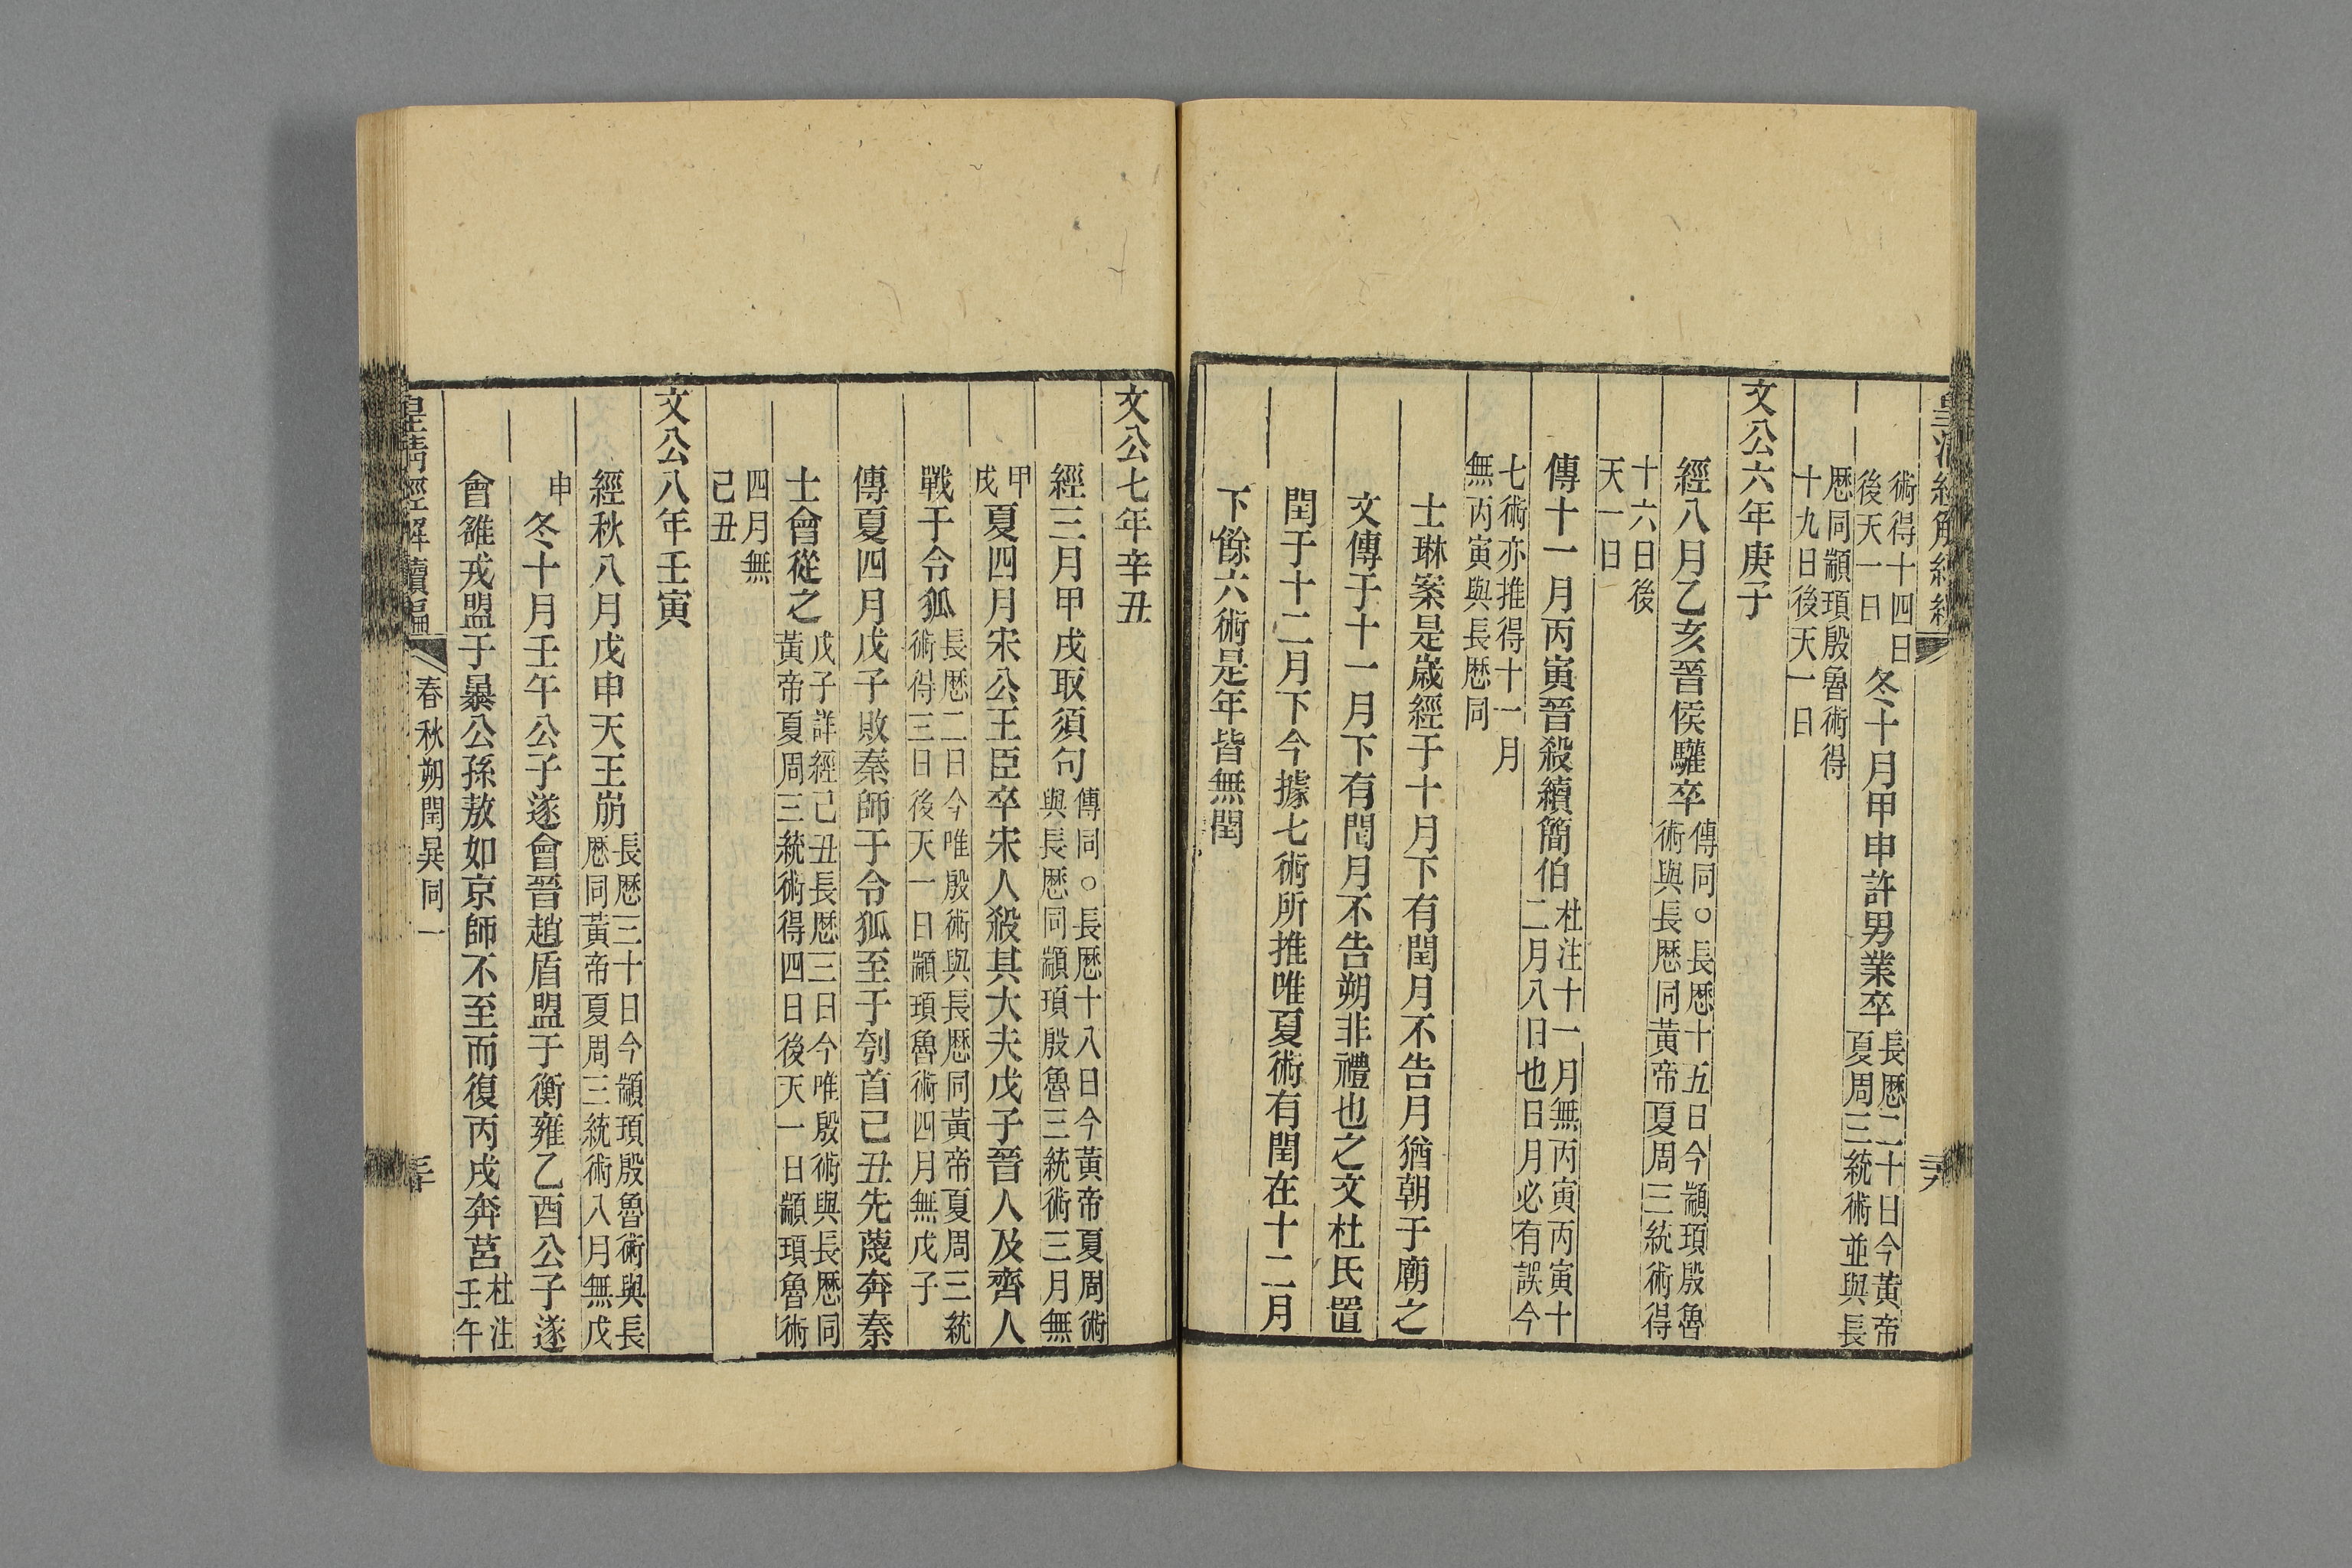 術得十四日
後天一日
冬十月甲申許男業卒
長厯二十日今黃帝
夏周三統術並與長
厯同顓頊殷魯術得
十九日後天一日
文公六年庚子
經八月乙亥晉侯驩卒
傳同○長厯十五日今顓頊殷魯
術與長厯同黃帝夏周三統術得
十六日後
天一日
傳十一月丙寅晉殺續簡伯
杜注十一月無丙寅丙寅十
二月八日也日月必有誤今
七術亦推得十一月
無丙寅與長厯同
士琳案是歲經于十月下有閏月不告月猶朝于廟之
文傳于十一月下有閏月不告朔非禮也之文杜氏置
閏于十二月下今據七術所推唯夏術有閏在十二月
下餘六術是年皆無閏
文公七年辛丑
經三月甲戌取須句
傳同○長厯十八日今黃帝夏周術
與長厯同顓頊殷魯三統術三月無
甲
戌
夏四月宋公王臣卒宋人殺其大夫戊子晉人及齊人
戰于令狐
長厯二日今唯殷術與長厯同黃帝夏周三統
術得三日後天一日顓頊魯術四月無戊子
傳夏四月戊子敗秦師于令狐至于刳首己丑先蔑奔秦
士會從之
戊子詳經己丑長厯三日今唯殷術與長厯同
黃帝夏周三統術得四日後天一日顓頊魯術
四月無
己丑
文公八年壬寅
經秋八月戊申天王崩
長厯三十日今顓頊殷魯術與長
厯同黃帝夏周三統術八月無戊
申
冬十月壬午公子遂會晉趙盾盟于衡雍乙酉公子遂
會雒戎盟于暴公孫敖如京師不至而復丙戌奔莒
杜注
壬午
皇清經解續編
春秋朔閏異同一